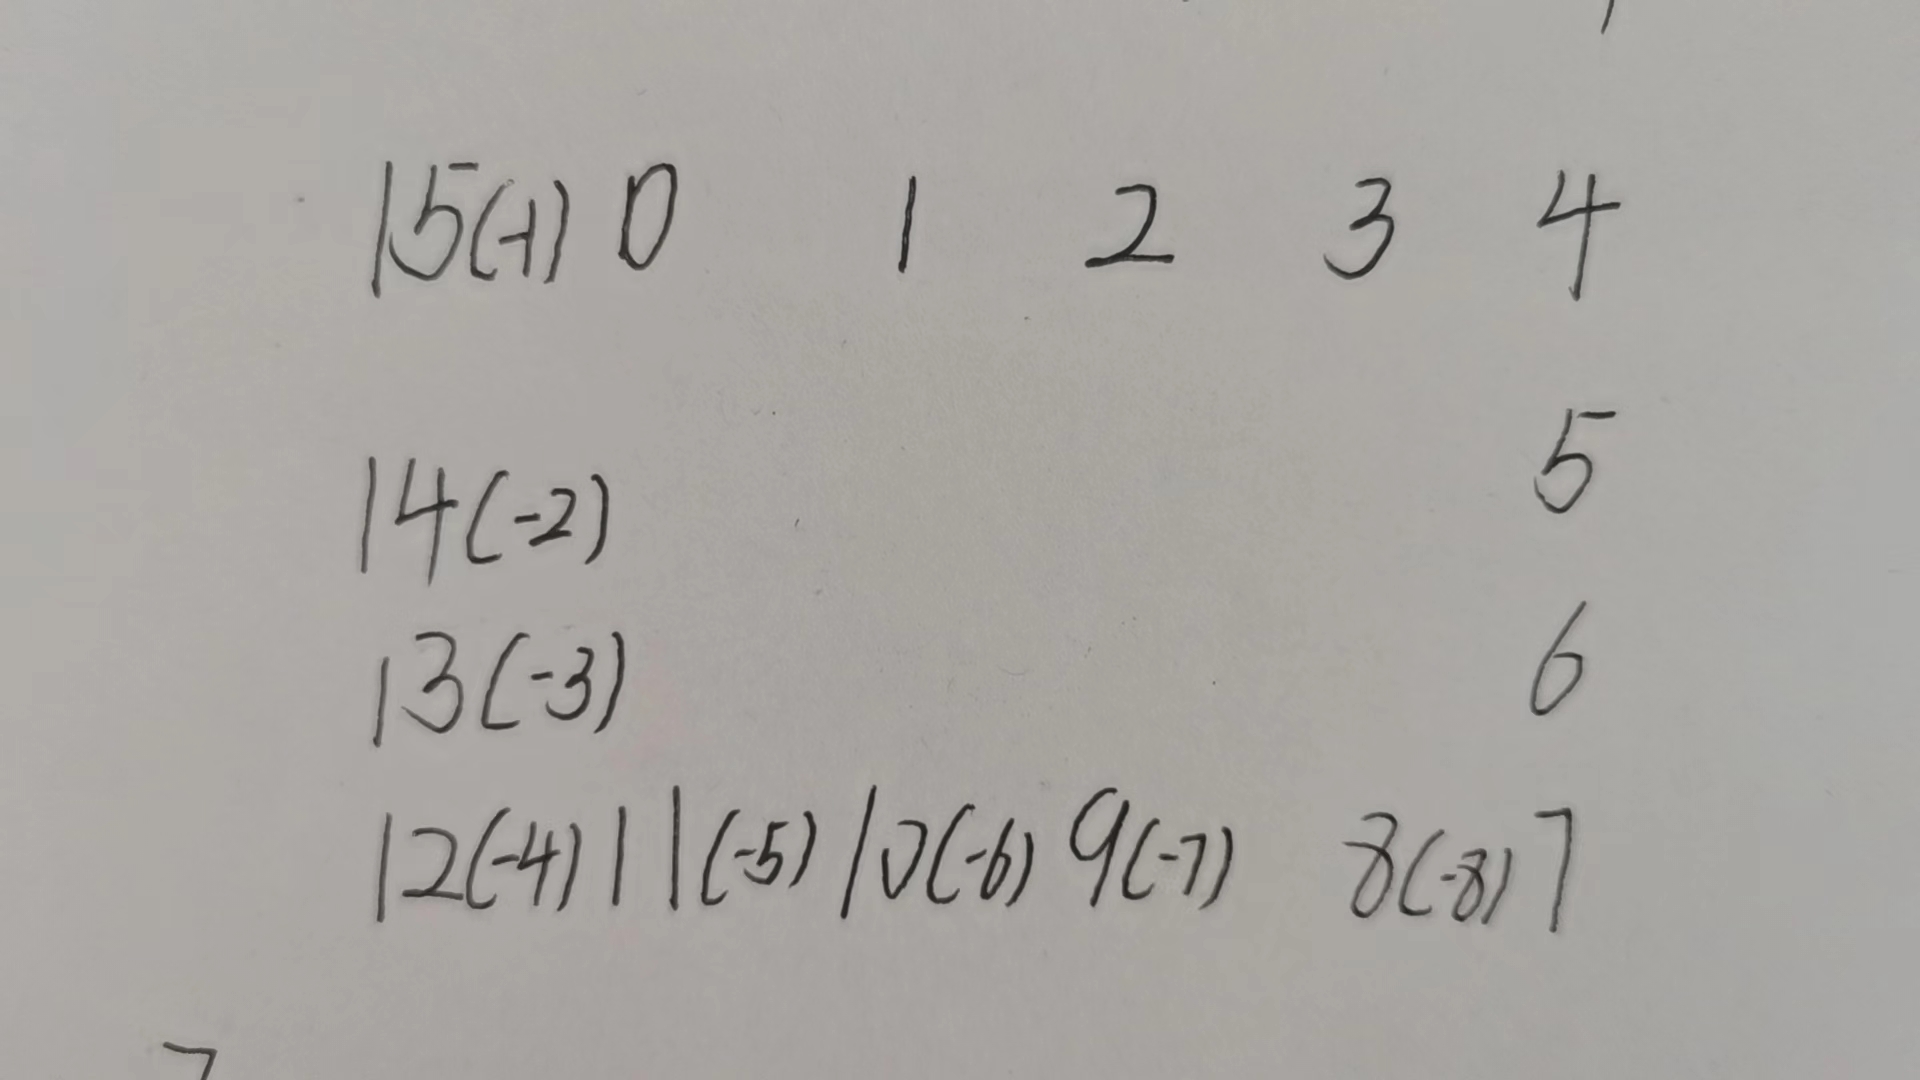 15(-1) 0 1 2 3 4
5
14(-2)
13(-3) 6
12(-4) 11(-5) 10(-6) 9(-7) 8(-8) 7
7